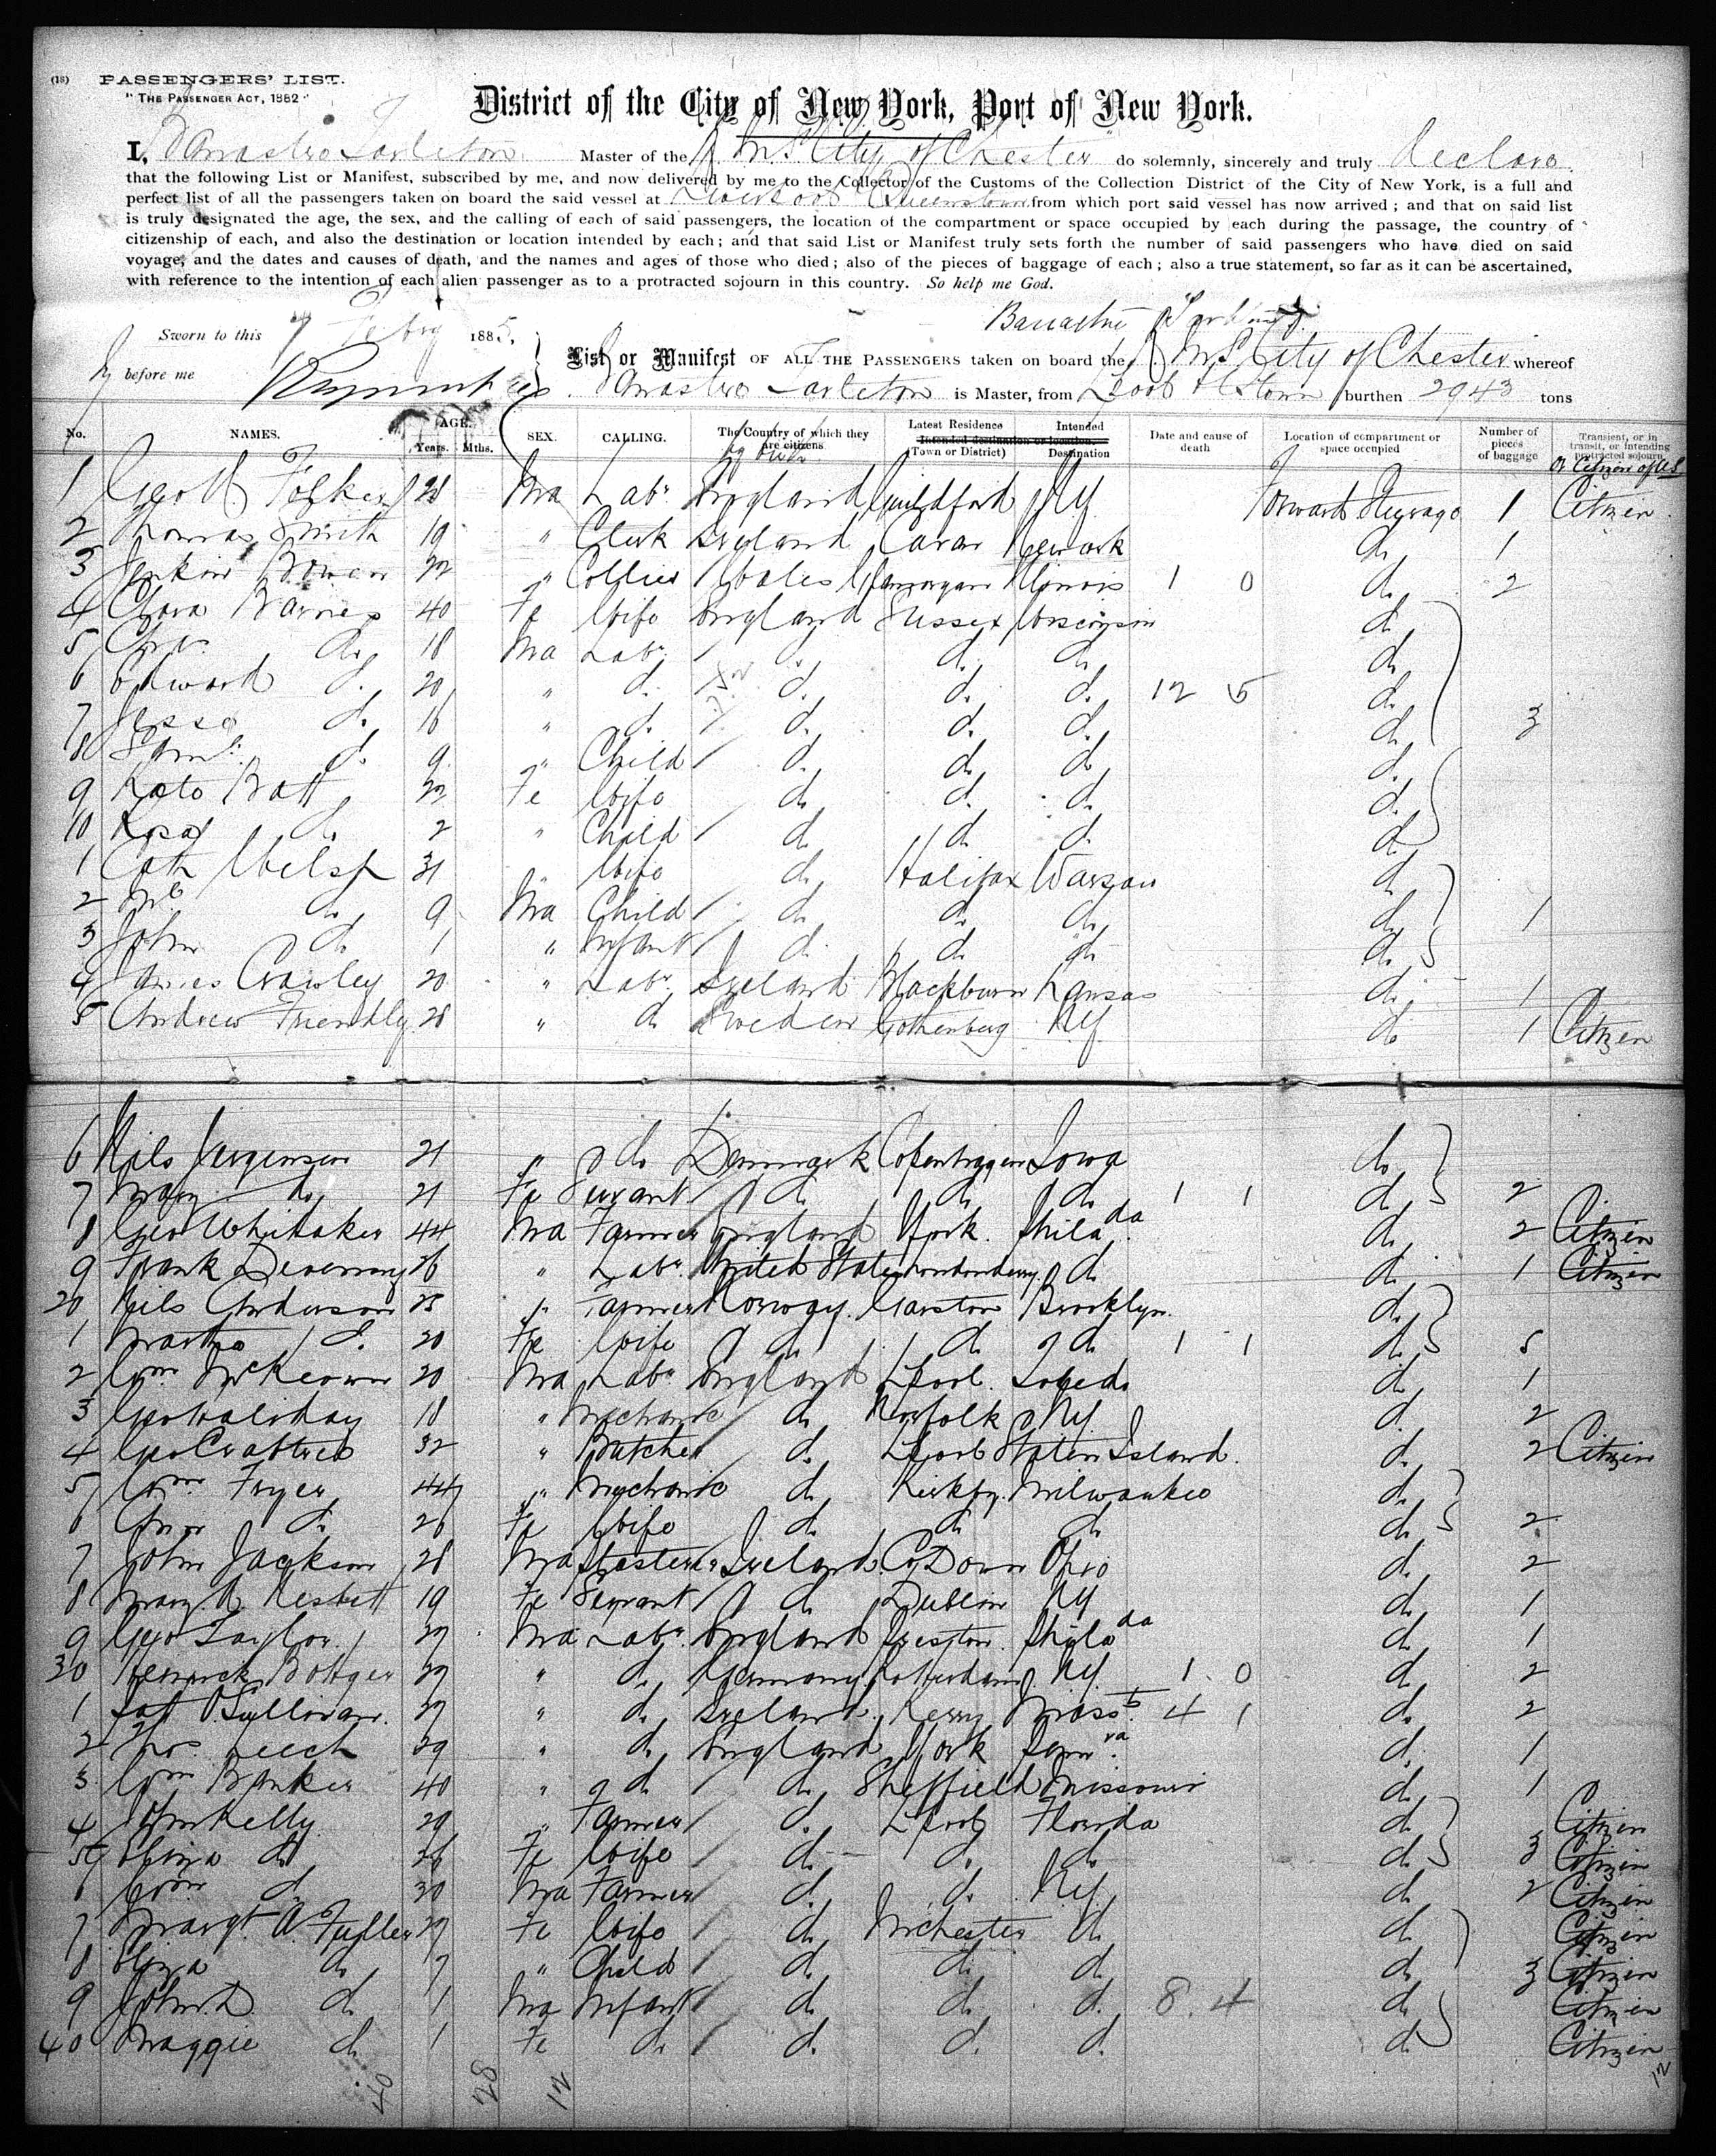 (18) PASSENGERS' LIST.
"THE PASSENGER ACT, 1882"
District of the City of New York, Port of New York.
I, Banastre Tarleton Master of the City of Chester do solemnly, sincerely and truly declare
that the following List or Manifest, subscribed by me, and now delivered by me to the Collector of the Customs of the Collection District of the City of New York, is a full and
perfect list of all the passengers taken on board the said vessel at Liverpool Queenstown from which port said vessel has now arrived; and that on said list
is truly designated the age, the sex, and the calling of each of said passengers, the location of the compartment or space occupied by each during the passage, the country of
citizenship of each, and also the destination or location intended by each; and that said List or Manifest truly sets forth the number of said passengers who have died on said
voyage, and the dates and causes of death, and the names and ages of those who died; also of the pieces of baggage of each; also a true statement, so far as it can be ascertained,
with reference to the intention of each alien passenger as to a protracted sojourn in this country. So help me God.
Banastre Tarleton
Sworn to this 7 Feby 1885,
before me
List or Manifest OF ALL THE PASSENGERS taken on board the City of Chester whereof
Banastre Tarleton is Master, from Lpool & Qtown burthen 2943 tons
No. NAMES. AGE. Years. Mths. SEX. CALLING. The Country of which they are citizens Latest Residence (Town or District) Intended destination or location, Intended Destination Date and cause of death Location of compartment or space occupied Number of pieces of baggage Transient, or in transit, or intending protracted sojourn
by birth or Citizen of US
1 Geo 28 Ma Labr England Guildford NY Forward Steerage 1 Citizen
2 Thomas Smith 19 " Clerk Ireland Cavan Newark do 1
3 Jenkin Bowen 22 " Collier Wales Glamorgan Illinois 1 0 do 2
4 Clara Barnes 40 Fe Wife England Sussex Wisconsin do
5 do 18 Ma Labr do do do do
6 Edward do 20 " do do do do 12 5 do
7 Jesse do 16 " do do do do do 3
8 Saml do 9 " Child do do do do
9 Kate Batt 22 Fe Wife do do do do
10 Rosa do 2 " Child do do do do
1 Cath Welsh 31 " Wife do Halifax Warsaw do
2 do 9 Ma Child do do do do 1
3 John do 1 " Infant do do do do
4 James Crawley 20 " Labr Ireland Blackburn Kansas do 1
5 Andrew Friendly 28 " do Sweden Gothenburg NY do 1 Citizen
6 Nils Jergensen 21 " do Denmark Copenhagen Iowa do
7 Mary do 21 Fe Servant do do do 1 1 do 2
8 Geo Whitaker 44 Ma Farmer England York Philada do 2 Citizen
9 Frank Devenny 26 " Labr United States Londonderry do do 1 Citizen
20 Nils Anderson 25 " Farmer Norway Garston Brooklyn do
1 Martha do 20 Fe Wife do do do 1 1 do 5
2 Wm McKeown 20 Ma Labr England Lpool Toledo do 1
3 Geo Haliday 18 " Mechanic do Norfolk NY do 2
4 Geo Crabtree 32 " Butcher do Lpool Staten Island do 2 Citizen
5 Wm Fryer 44 " Mechanic do Kirkby Milwaukee do
6 do 26 Fe Wife do do do do 2
7 John Jackson 28 Ma Plasterer Ireland Co Down Ohio do 2
8 Mary A Nesbitt 19 Fe Servant do Dublin NY do 1
9 Geo Taylor 22 Ma Labr England Preston Philada do 1
30 Bottger 22 " do Germany Rotterdam NY 1 0 do 2
1 Patt O'Sullivan 27 " do Ireland Kerry Mass 4 1 do 2
2 Thos Leech 29 " do England York Penn do 1
3 Wm Banker 40 " do do Sheffield Missouri do 1
4 John Kelly 29 " Farmer do Lpool Florida do Citizen
5 Eliza do 26 Fe Wife do do do do 3 Citizen
6 Wm do 30 Ma Farmer do do NY do 2 Citizen
7 Margt A Fuller 27 Fe Wife do do do Citizen
8 Eliza do 7 " Child do do do do 3 Citizen
9 John do 1 Ma Infant do do do 8 4 do Citizen
40 Maggie do 1 Fe do do do do do Citizen
28 12 12